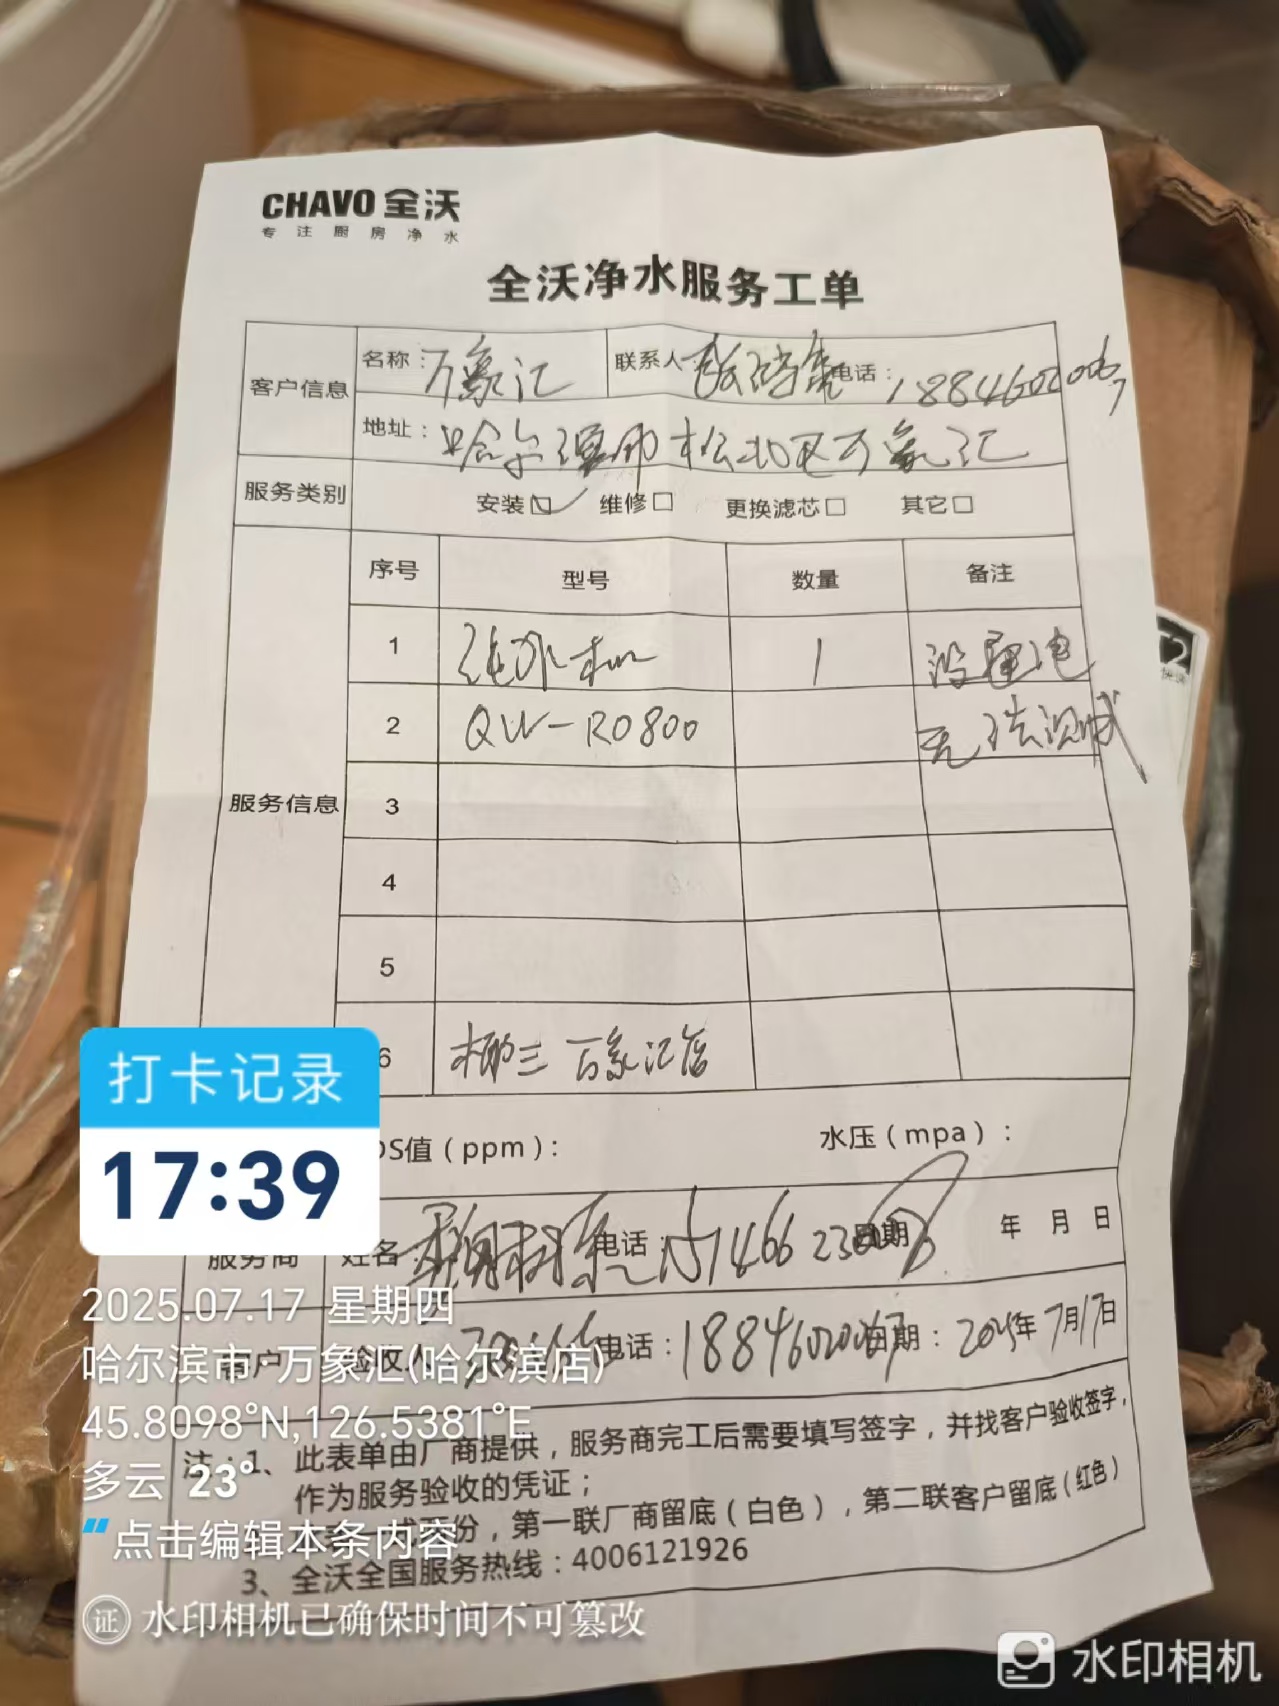 CHAVO 全沃
专注厨房净水
全沃净水服务工单
客户信息 名称：万象汇 联系人 电话：18846020067
地址：哈尔滨市松北区万象汇
服务类别 安装 维修 更换滤芯 其它
服务信息 序号 型号 数量 备注
1 净水机 1 没通电
2 QW-RO800 无法测试
3
4
5
6 柳三 万象汇店
DS值（ppm）： 水压（mpa）：
服务商 姓名： 电话： 日期 年 月 日
客户 验收人 电话：18846020067 日期：2025年7月17日
注：1、此表单由厂商提供，服务商完工后需要填写签字，并找客户验收签字，
作为服务验收的凭证；
份，第一联厂商留底（白色），第二联客户留底（红色）
3、全沃全国服务热线：4006121926
打卡记录
17:39
2025.07.17 星期四
哈尔滨市·万象汇(哈尔滨店)
45.8098°N,126.5381°E
多云 23°
点击编辑本条内容
证 水印相机已确保时间不可篡改
水印相机